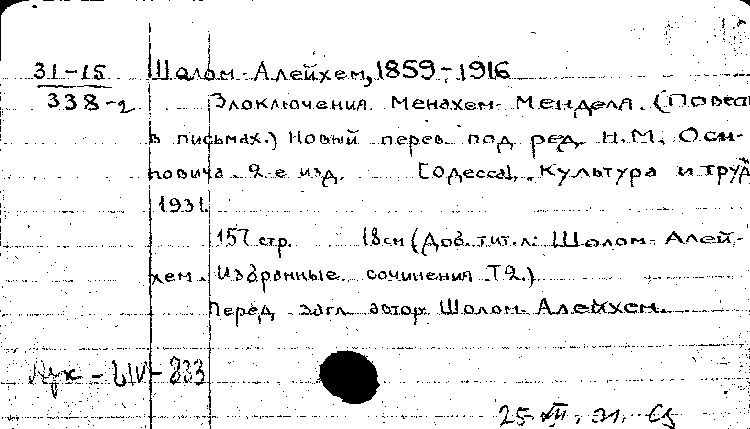 31-15 Шолом-Алейхем, 1859-1916
338-2 Злоключения Менахем-Менделя. (Повест
в письмах.) Новый перев. под ред. Н.М. Оси-
повича. 2-е изд. [Одесса], Культура и труд
1931.
157 стр. 18см (Доб. тит. л: Шолом-Алей-
хем. Избранные сочинения Т2.)
Перед загл. автор: Шолом-Алейхем.
25 VII. 31.